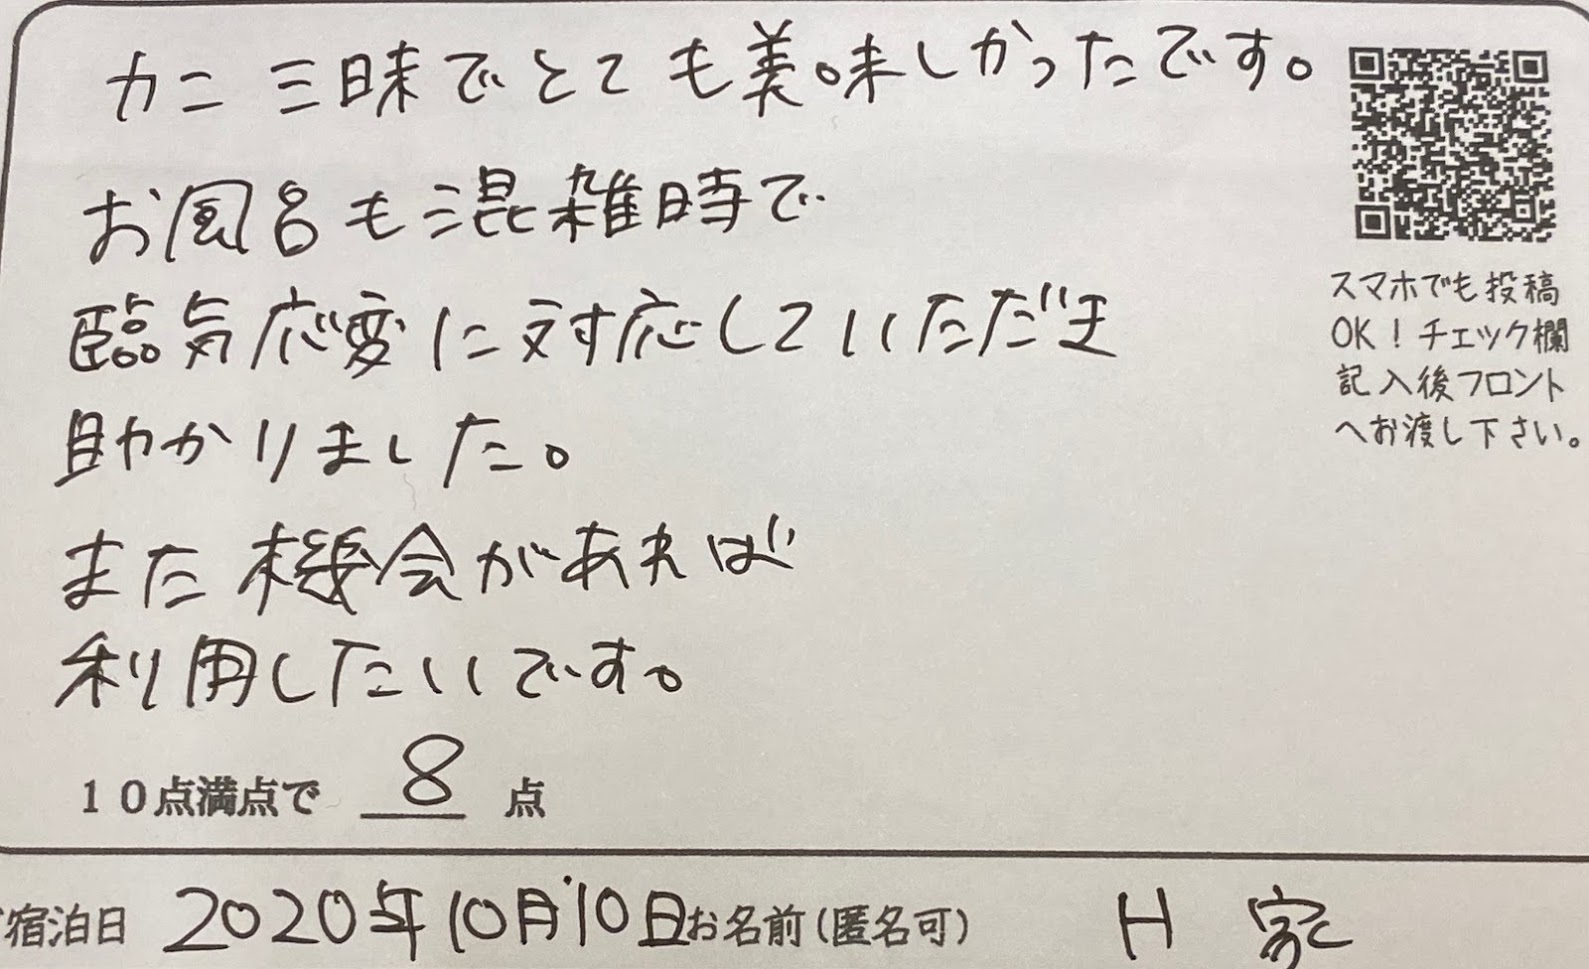 カニ三昧でとても美味しかったです。
お風呂も混雑時で
臨気応変に対応していただき
助かりました。
また機会があれば
利用したいです。
スマホでも投稿
OK！チェック欄
記入後フロント
へお渡し下さい。
10点満点で 8 点
宿泊日 2020年10月10日 お名前(匿名可) H 家